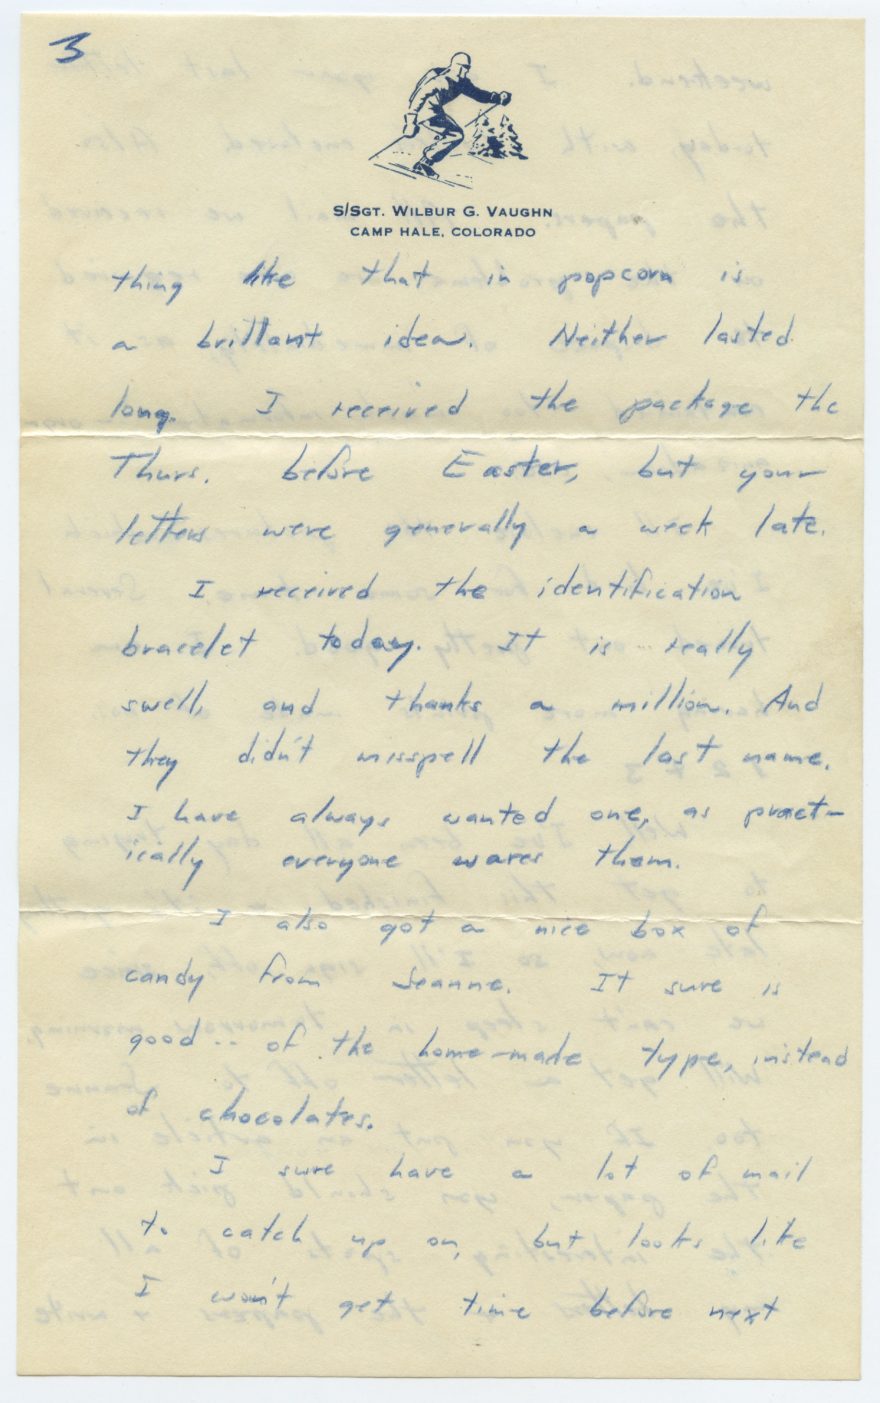 3
S/SGT. WILBUR G. VAUGHN
CAMP HALE, COLORADO
thing like that in popcorn is
a brillant idea. Neither lasted
long. I received the package the
Thurs. before Easter, but your
letters were generally a week late.
I received the identification
bracelet today. It is really
swell, and thanks a million. And
they didn't misspell the last name.
I have always wanted one, as pract-
ically everyone wares them.
I also got a nice box of
candy from Jeanne. It sure is
good.. of the home-made type, instead
of chocolates.
I sure have a lot of mail
to catch up on, but looks like
I won't get time before next